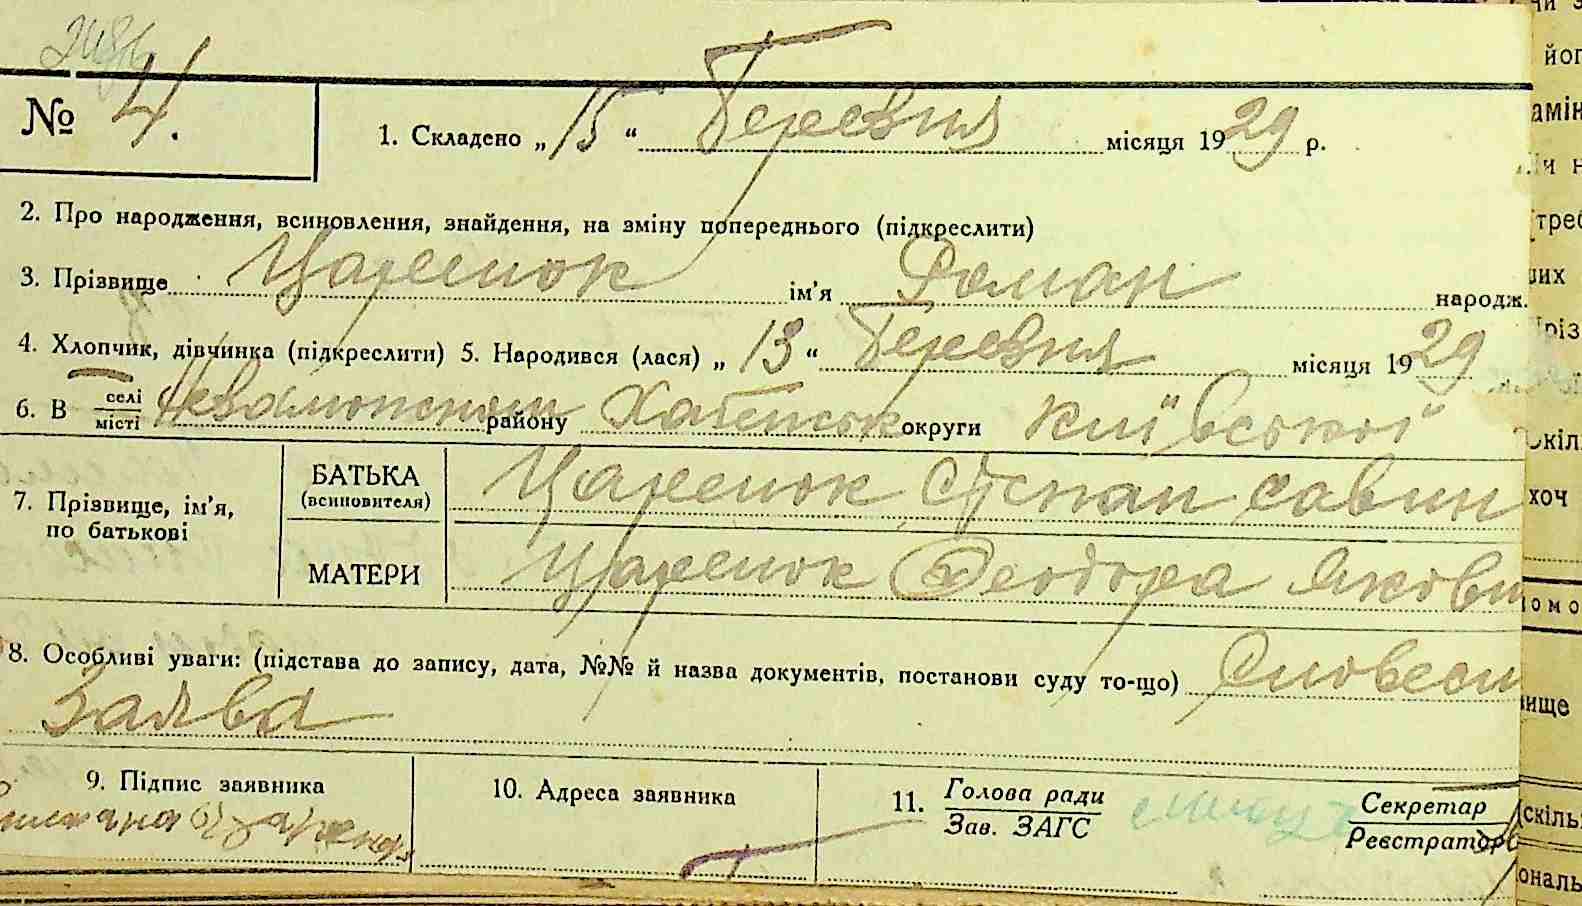 № 4.
1. Складено „ 15 “ Березня місяця 1929 р.
2. Про народження, всиновлення, знайдення, на зміну попереднього (підкреслити)
3. Прізвище Царенок ім'я Роман народж.
4. Хлопчик, дівчинка (підкреслити) 5. Народився (лася) „ 13 “ Березня місяця 1929
6. В селі місті району Хабенськ округи Київської
7. Прізвище, ім'я, по батькові
БАТЬКА (всиновителя) Царенок Степан Савин
МАТЕРИ Царенок Феодора Яковн
8. Особливі уваги: (підстава до запису, дата, №№ й назва документів, постанови суду то-що) Словесн
Заява
9. Підпис заявника
10. Адреса заявника
11. Голова ради
Зав. ЗАГС
Секретар
Реєстратор